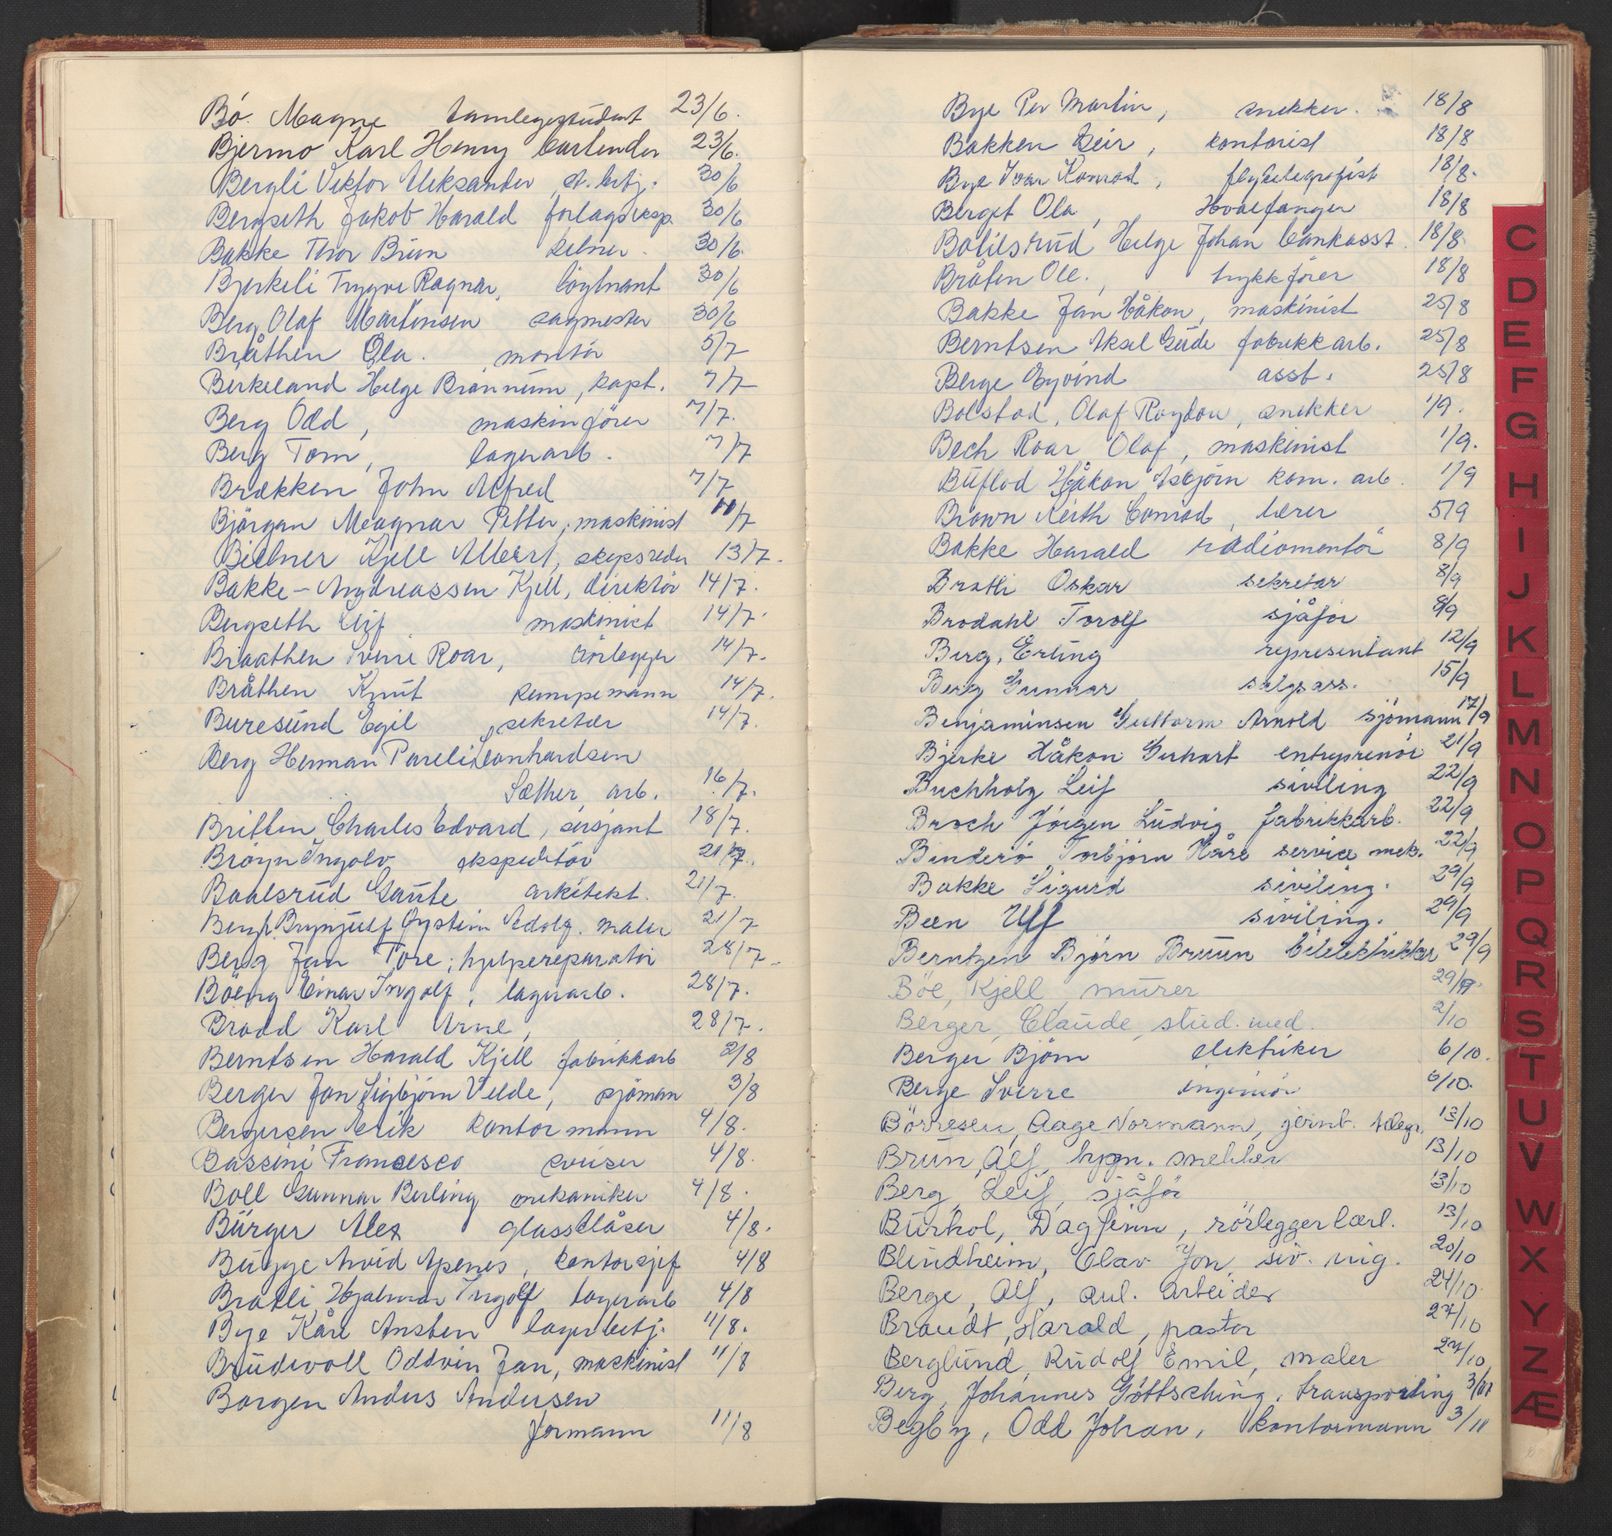 Bö. Magne tannlegestudent 23/6.
Bjermo Karl Henry bartender 23/6.
Bergli Viktor Aleksander st. betj. 30/6
Bergseth Jakob Harald forlagseksp. 30/6
Bakke Thor Brun kelner. 30/6.
Bjerkeli Trygve Ragnar, löytnant 30/6
Berg Olaf Martinsen sagmester 30/6
Bråthen Ola. montör 5/7
Berkeland Helge Brannum, kapt. 7/7
Berg Odd, maskinförer 7/7.
Berg Tom, lagerarb. 7/7
Brækken John Alfred 7/7
Björgan Magnar Petter, maskinist 11/7
Biehner Kjell Albert, skipsreder 13/7.
Bakke-Andreassen Kjell, direktör 14/7.
Bergseth Leif maskinist 14/7.
Braathen Sverre Roar, rörlegger 14/7.
Bråthen Knut kumpemann 14/7.
Buresund Egil, sekretær 14/7.
Berg Herman Pareli Leonhardsen
Sæther, arb. 16/7.
Britten Charles Edvard, sersjant 18/7.
Bröyn Ingolv ekspeditör 21/7.
Baalsrud Gaute arkitekt. 21/7.
Bergh Brynjulf Øystein Adolg. maler 21/7
Berg Jan Tore, hjelpereparatör 28/7
Böeng Einar Ingolf, lagerarb. 28/7.
Brodd Karl Arne, 28/7.
Berntsen Harald Kjell fabrikkarb 2/8
Berger Jan Sigbjörn Velde, sjömann 3/8
Bergersen Erik kontormann 4/8.
Bassini Francesco sveiser 4/8.
Boll Gunnar Berling mekaniker 4/8.
Bürger Alex glassblåser 4/8.
Bugge Arvid Apenes, kontorsjef 4/8
Bratli Hjalmar Ingolf lagerarb 4/8
Bye Kåre Ansten lagerbetj. 11/8.
Brudevoll Oddvin Jan, maskinist 11/8
Borgen Anders Andersen
formann 11/8
Bye Per Martin, snekker. 18/8
Bakken Geir, kontorist 18/8
Bye Ivar Konrad, flytelegrafist 18/8.
Berget Ola, Hvalfanger 18/8
Bolilsrud Helge Johan bankasst. 18/8
Bråten Ole., trykkförer 18/8
Bakke Jan Håkon, maskinist 25/8
Berntsen Aksel Gude fabrikkarb. 25/8
Berge Eyvind asst. 25/8
Bolstad, Olaf Roydon, snekker 1/9.
Bech Roar Olaf, maskinist 1/9.
Buflod Håkon Asbjörn kom. arb. 1/9
Brown Keith Conrad, lærer 5/9
Bakke Harald radiomontör 8/9
Bratli Oskar sekretær 8/9
Brodahl Torolf sjåför 8/9
Berg, Erling representant 12/9
Berg Gunnar salgsass. 15/9
Benjaminsen Guttorm Arnold sjömann 17/9
Bjerke Håkon Gerhart entreprenör 21/9
Buchholz Leif siviling 22/9
Broch Jörgen Ludvig fabrikkarb. 22/9
Binderö Torbjörn Kåre service mek. 22/9
Bakke Sigurd siviling. 29/9
Been Ulf siviling. 29/9
Berntzen Björn Bruun bilelektrikker 29/9
Böe, Kjell, murer 29/9.
Berger, Claude, stud. med. 2/10
Berger Björn elektriker 6/10.
Berge Sverre ingeniör 6/10.
Börresen, Aage Normann, jernb. telegr. 13/10
Brun, Alf, bygn. snekker 13/10
Berg Leif, sjåför 13/10
Burkol, Dagfinn, rörleggerlærl. 13/10
Blindheim, Olav Jon, siv. ing. 20/10
Berge, Alf, anl. arbeider 24/10
Brandt, Harald, pastor 27/10
Berglund, Rudolf Emil, maler 27/10
Berg, Johannes Göttsching, transporting 3/11
Begby, Odd Johan, kontormann 3/11
C
D
E
F
G
H
I
J
K
L
M
N
O
P
Q
R
S
T
U
V
W
X
Y
Z
Æ